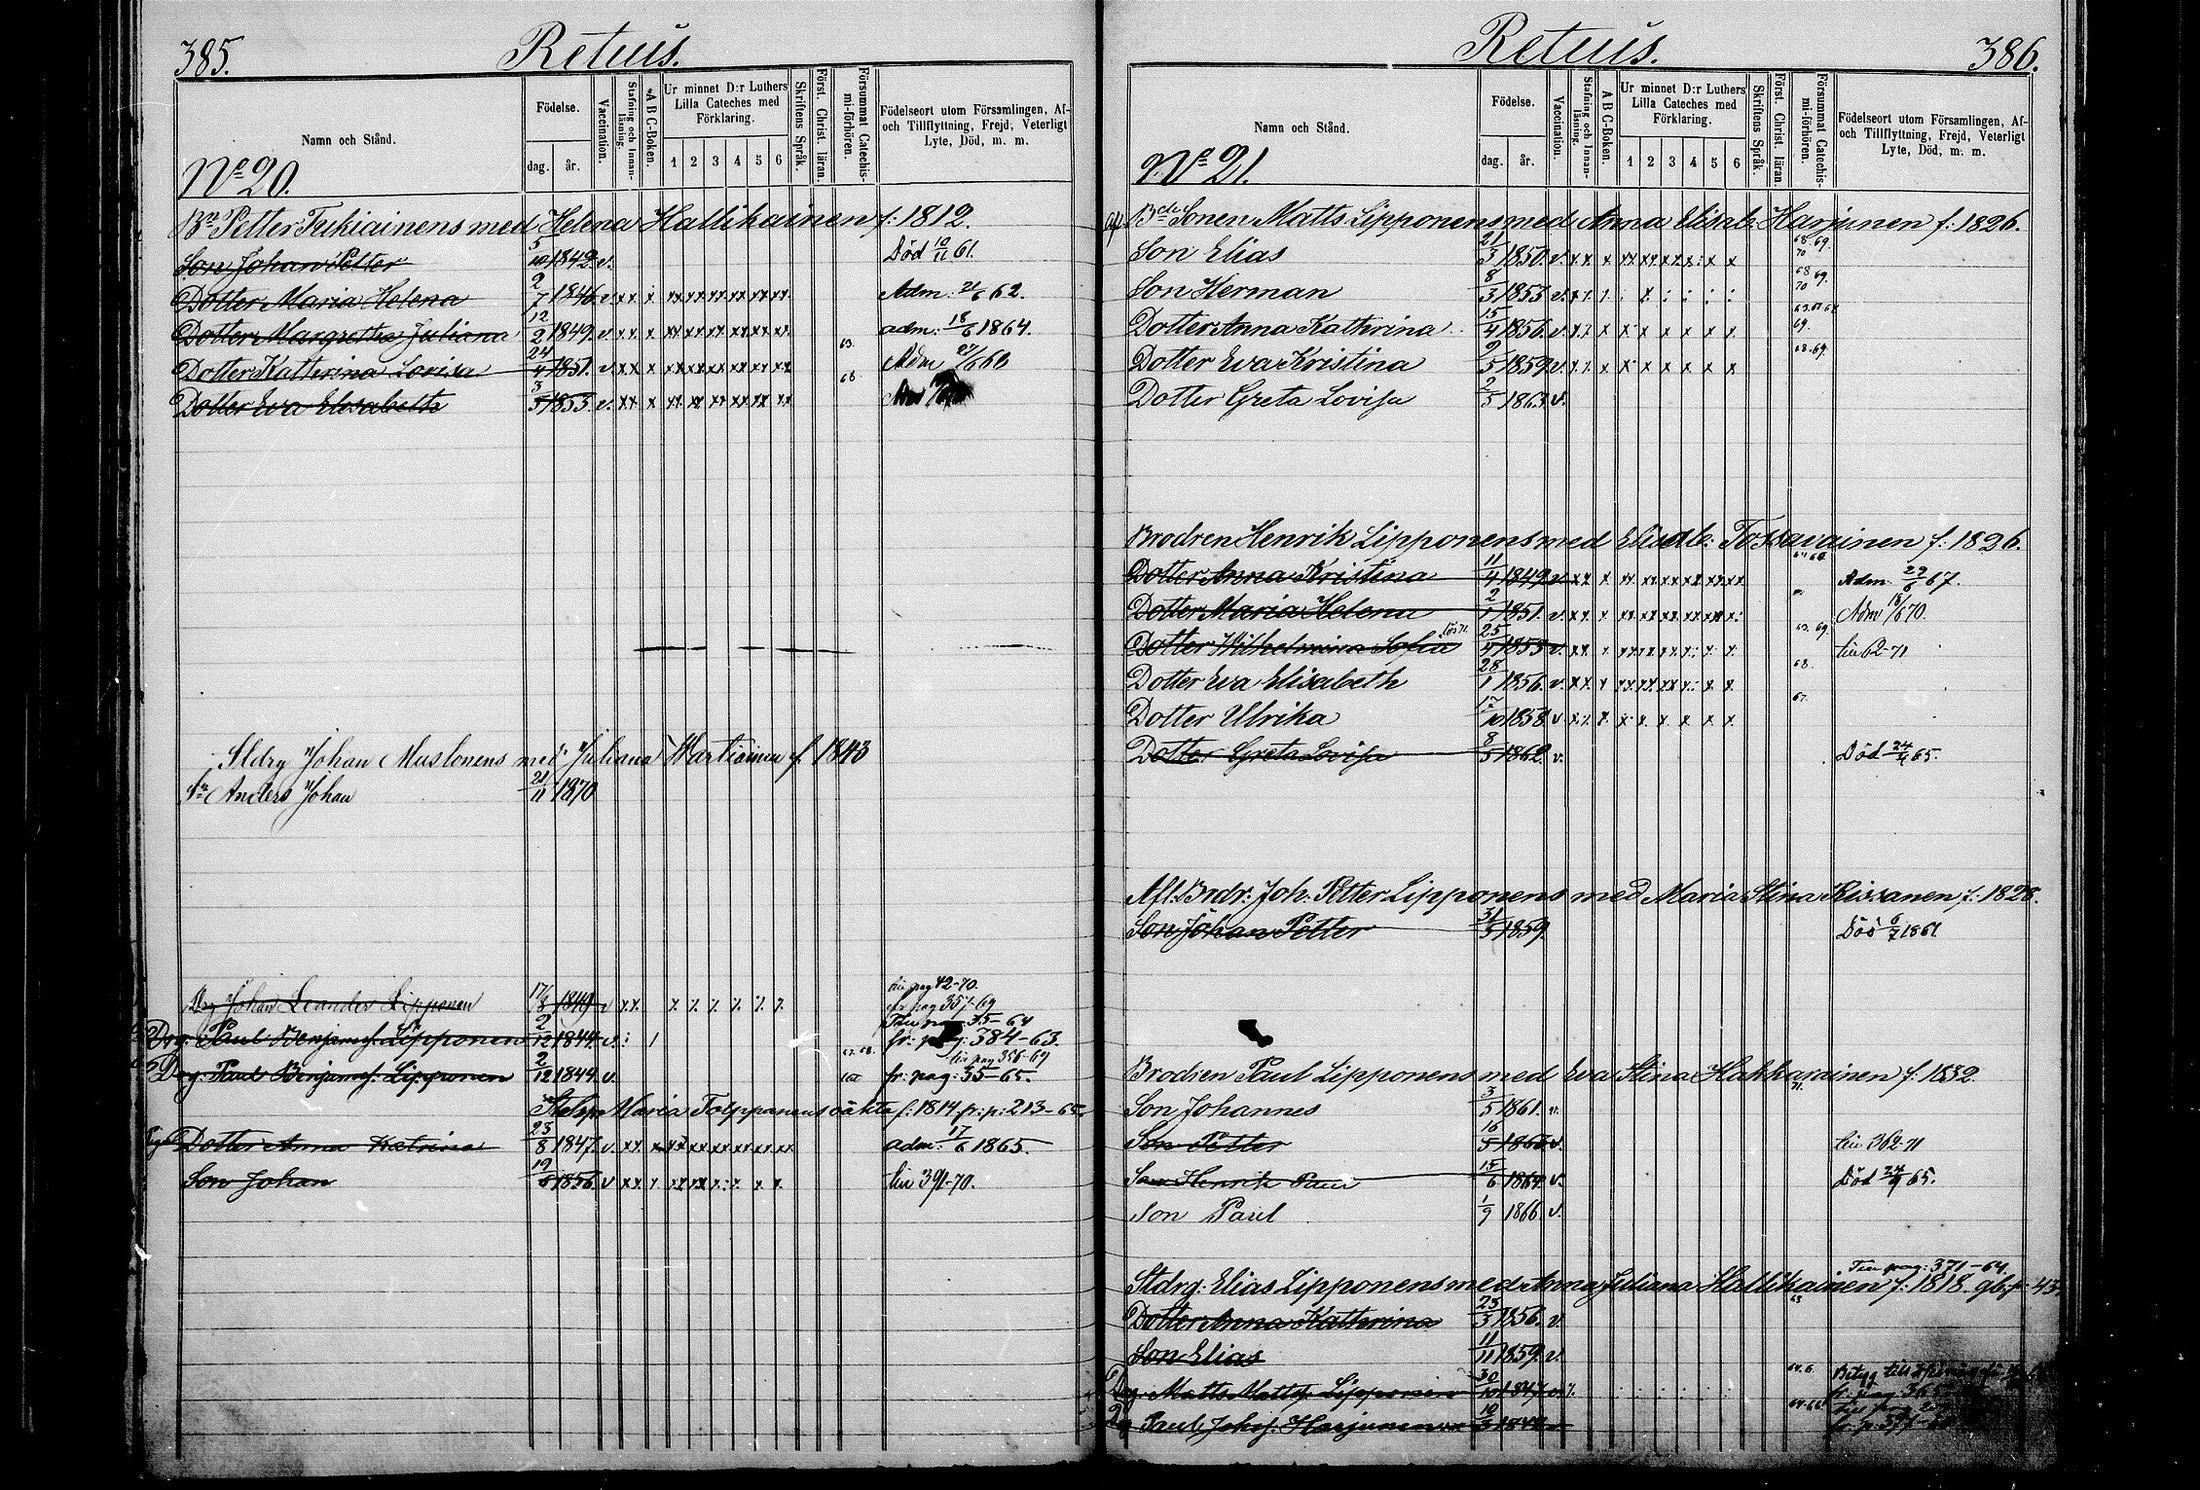 385.
Retuis.
Namn och Stånd.
Födelse.
dag.
år.
Vaccination.
Stafning och Innanläsning.
A B C-Boken.
Ur minnet D:r Luthers Lilla Cateches med Förklaring.
1 2 3 4 5 6
Skriftens Språk.
Först. Christ. läran.
Försummat Catechismi-förhören.
Födelseort utom Församlingen, Af- och Tillflyttning, Frejd, Veterligt Lyte, Död, m. m.
No 20.
Bn Petter Tukiainens med Helena Hallikainen f: 1812.
Son Johan Petter 5/10 1842. v. Död 10/11 61.
Dotter Maria Helena 2/7 1846 v xx x xx xx xx xx xx xx Adm. 21/6 62.
Dotter Margretha Juliana 12/2 1849. v. xx x xx xx xx xx xx xx adm: 18/6 1864.
Dotter Kathrina Lovisa 24/4 1851. v xx x xx xx xx xx xx xx 63. Adm 27/6 66
Dotter Eva Elisabeth 3/5 1853. v. xx x xx xx xx xx xx xx 68
Sldrg Johan Mustonens med Juliana Wartiainen f. 1843
Sn Anders Johan 21/11 1870
Drg Johan Leander Lipponen 17/8 1849 v xx x x x x x x liu pag 42-70.
fr pag 357-69
Drg: Paul Benjamsf. Lipponen 2/12 1844 v. fr: pag: 384-63.
liu pag 356-69
Drg: Paul Benjamsf. Lipponen 2/12 1844 v. fr: pag: 35-65.
Maria Tolppanens oäkta f: 1814 fr: p: 213-65
Dotter Anna Katrina 23/8 1847. v. xx x xx xx xx xx xx xx adm: 17/6 1865.
Son Johan 19/6 1856. v xx x xx xx x x x x liu 391-70.
Retuis.
386.
Namn och Stånd.
Födelse.
dag.
år.
Vaccination.
Stafning och Innanläsning.
A B C-Boken.
Ur minnet D:r Luthers Lilla Cateches med Förklaring.
1 2 3 4 5 6
Skriftens Språk.
Först. Christ. läran.
Försummat Catechismi-förhören.
Födelseort utom Församlingen, Af- och Tillflyttning, Frejd, Veterligt Lyte, Död, m. m.
No 21.
Afl. Bde Sonen Matts Lipponens med Anna Elisab: Harjunen f: 1826.
Son Elias 21/3 1850. v. xx x xx xx xx x: x x 68. 69. 70
Son Herman 8/3 1853 v. 68 69. 70
Dotter Anna Kathrina 15/4 1856. v. x x x x x x x x 69.
Dotter Eva Kristina 9/5 1859 v x x x x x x x x 68. 69.
Dotter Greta Lovisa 2/5 1863 v.
Brodren Henrik Lipponens med Elisab: Tossavainen f: 1826.
Dotter Anna Kristina 11/4 1849 v. xx x xx xx xx xx xx xx Adm. 29/6 67.
Dotter Maria Helena 2/1 1851. v xx x xx xx xx xx xx x: Adm 18/6 70.
Dotter Wilhelmina Sofia 25/4 1853 v. xx x xx xx xx x: x. x. 63. 69. liu 62-71
Dotter Eva Elisabeth 28/1 1856. v. xx x xx xx xx x: x. x. 68.
Dotter Ulrika 17/10 1858. v x x x x x x x x x 67.
Dotter Greta Lovisa 8/5 1862. v. Död 24/4 65.
Afl: Brdr: Joh: Petter Lipponens med Maria Stina Kissanen f: 1828.
Son Johan Petter 31/5 1859. Död 6/7 1861
Brodren Paul Lipponens med Eva Stina Hakkarainen f: 1832.
Son Johannes 3/5 1861. v. 71.
Son Petter 16/5 1863 v. liu 362-71
Son Henrik Paul 15/6 1864. v. Död 24/4 65.
Son Paul 1/9 1866. v.
Tiu pag: 371-64.
Sldrg: Elias Lipponens med Anna Juliana Hallikainen f: 1818.
Dotter Anna Kathrina 23/3 1856. v. 63
Son Elias 11/11 1859. v.
Drg Matts Mattsf. Lipponen 30/10 1847
fr. pag. 365
Drg Paul Johsf. Harjunen